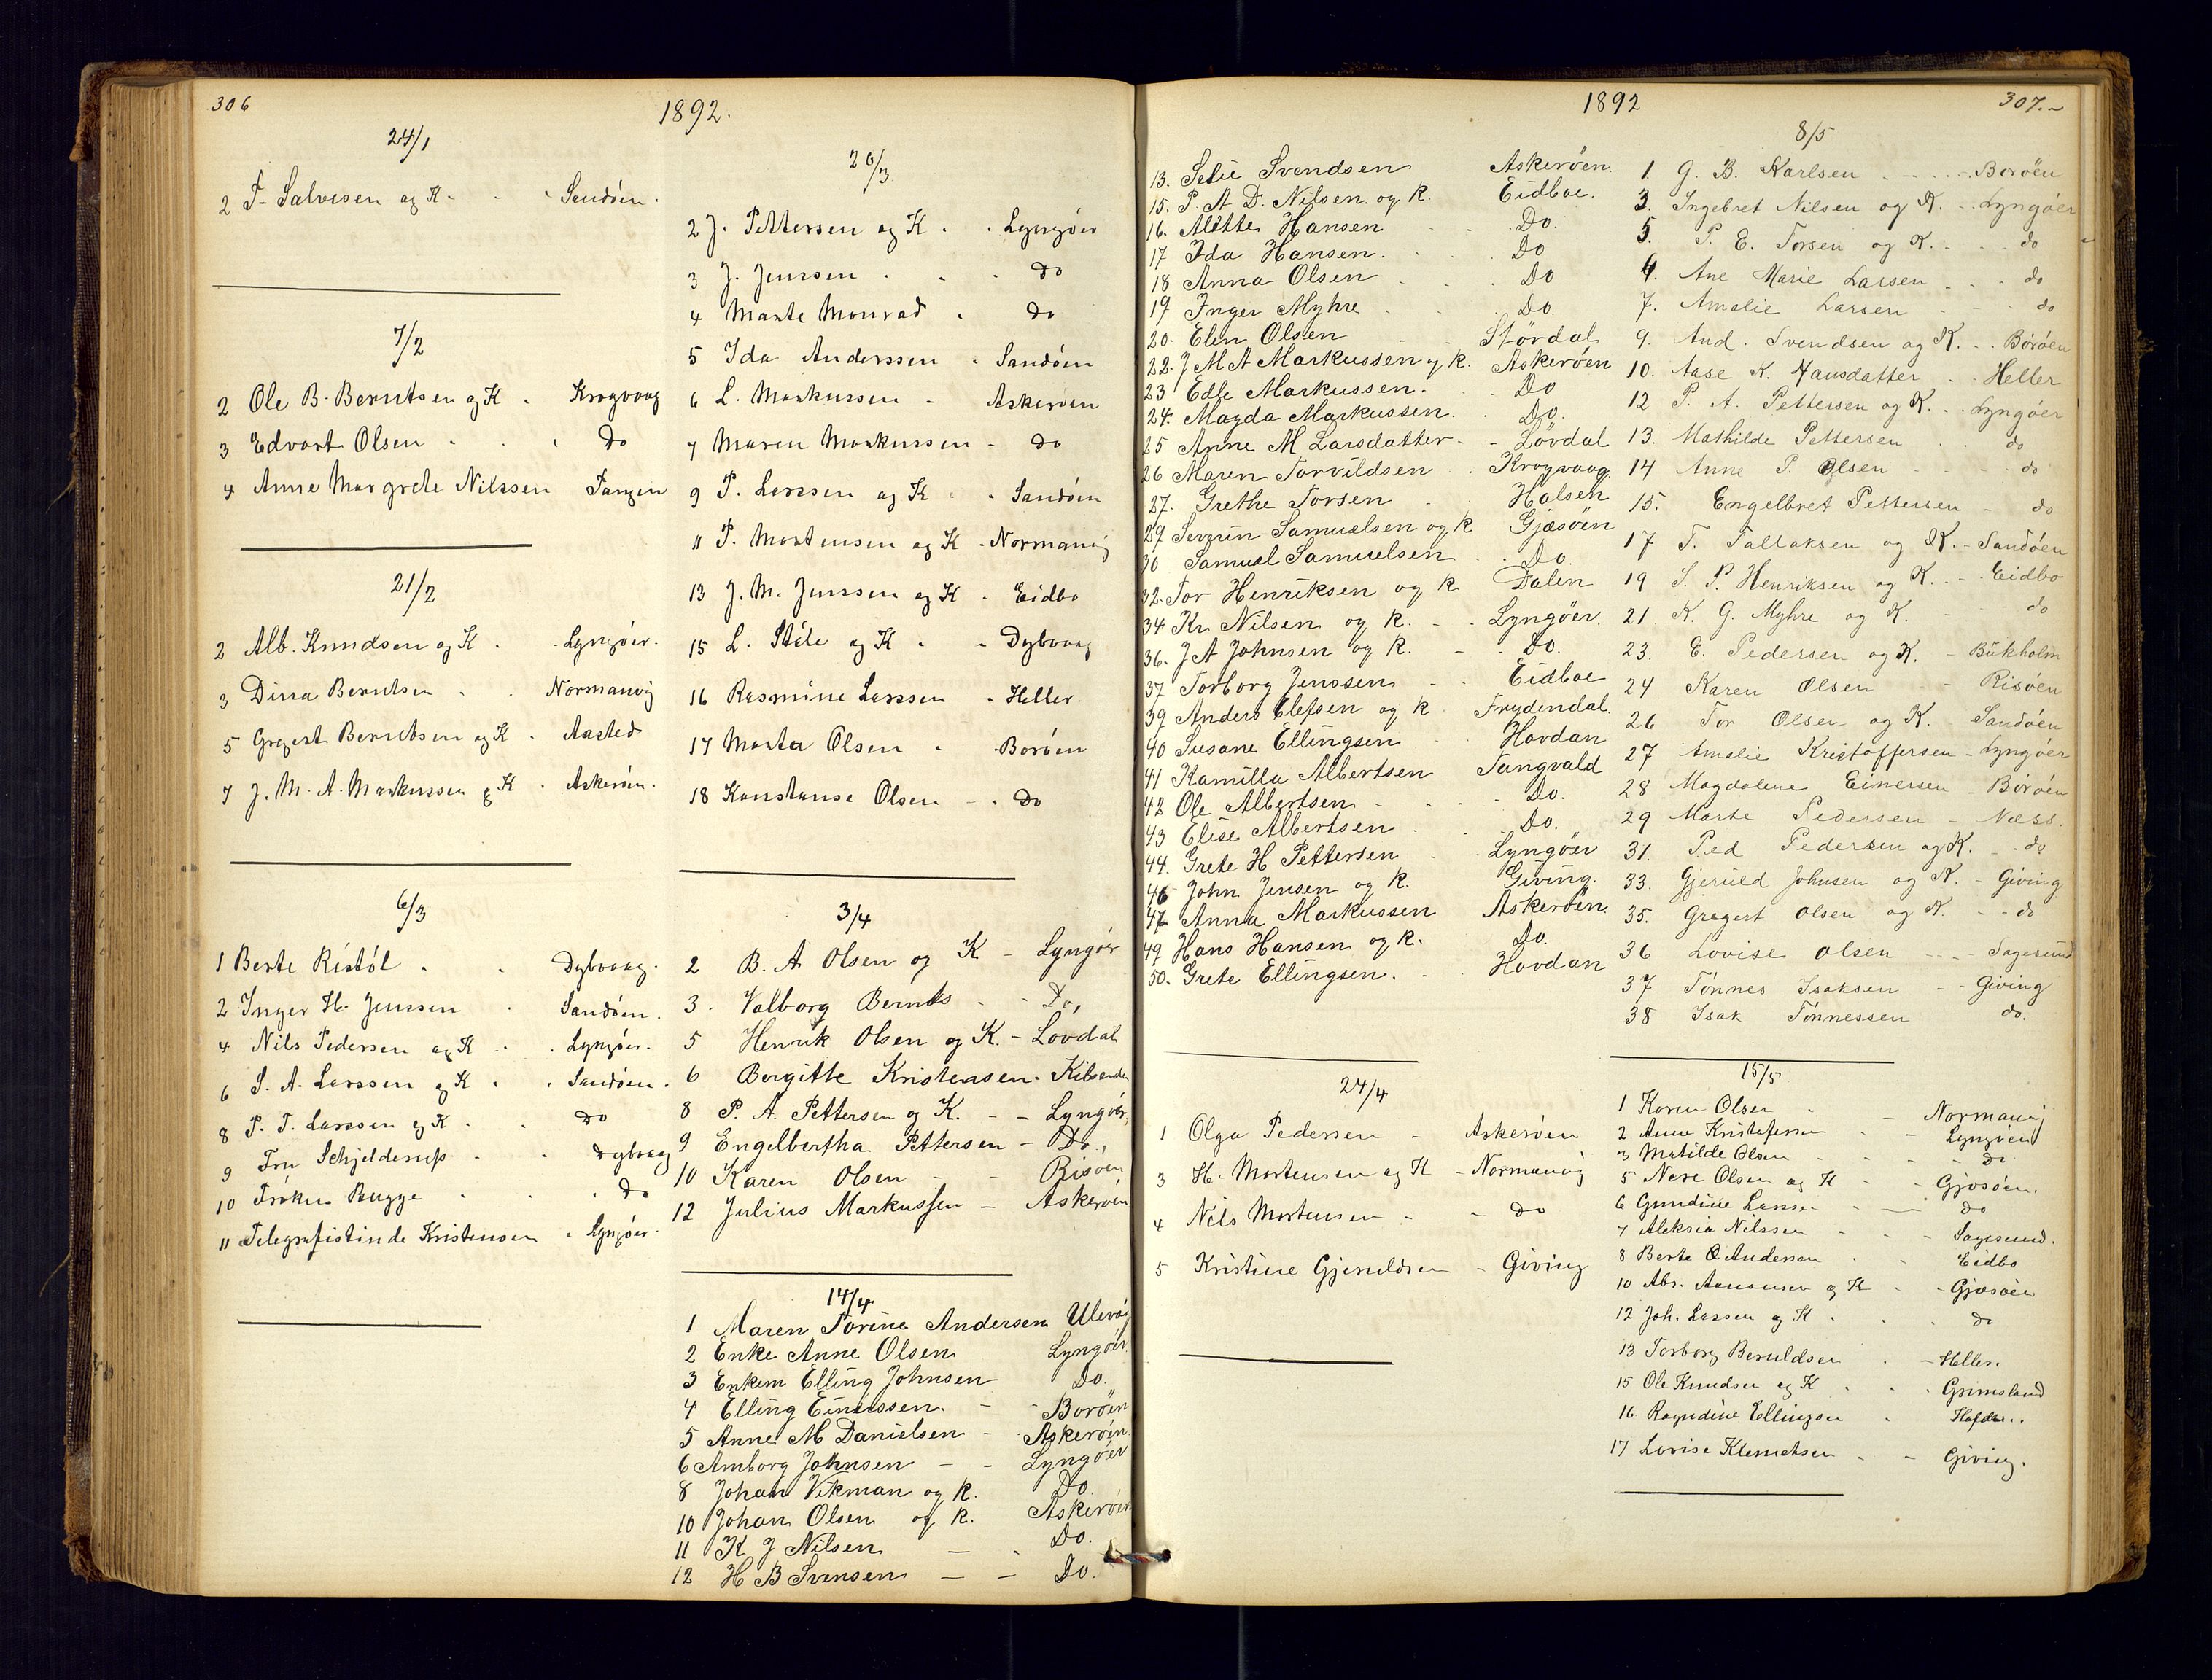 306
1892.
24/1
2 T. Salvesen og K. Sandöen.
7/2
2 Ole B. Berntsen og K. Krogvaag
3 Edvart Olsen do
4 Anne Margrete Nilssen Tangen
21/2
2 Alb. Knudsen og K. Lyngöer.
3 Dina Berntsen Normanvig
5 Gregert Berntsen og K. Aasted
7 J. M. A. Markussen og K. Askeröen.
6/3
1 Berte Ristöl. Dybvaag.
2 Inger H. Jenssen Sandöen.
4 Nils Pedersen og K Lyngöer.
6 S. A. Larssen og K. Sandöen.
8 P. T. Larssen og K. do
9 Fru Schjelderup Dybvaag
10 Fröken Bugge do
11 Telegrafistinde Kristensen Lyngöer.
20/3
2 J. Pettersen og K. Lyngöer
3 J. Jenssen do
4 Marte Monrad do
5 Ida Anderssen Sandöen
6 L. Markussen Askeröen
7 Maren Markussen do
9 P. Larssen og K Sandöen
11 T. Mortensen og K Normanvig
13 J. M. Jenssen og K Eidbo
15 L. Stéle og K Dybvaag
16 Rasmine Larssen Heller
17 Marta Olsen Boröen
18 Konstanse Olsen do
3/4
2 B. A. Olsen og K Lyngör
3. Valborg Bernts Do,
5 Henrik Olsen og K. Lovdal
6 Bergitte Kristensen.
8 P. A. Pettersen og K. Lyngöer,
9 Engelbertha Pettersen Do.
10 Karen Olsen Risöen
12 Julius Markussen Askeröen
14/4
1 Maren Torine Andersen Ulevåg
2 Enke Anne Olsen Lyngöer
3 Enkem Elling Johnsen Do.
4 Elling Einerssen. Boröen
5 Anne M Danielsen Askeröen
6 Amborg Johnsen Lyngöer
8 Johan Vikman og K. Do.
10 Johan Olsen og K. Askeröen
11 K J Nilsen Do.
12 H B Svensen Do.
1892
307.
13. Selie Svendsen Askeröen.
15. P. A D. Nilsen og K. Eidboe.
16. Alette Hansen Do.
17 Ida Hansen. Do
18 Anna Olsen Do
19 Inger Myhre Do.
20. Elen Olsen Stördal
22. J M A Markussen og K. Askeröen
23 Edle Markussen. Do
24. Magda Markussen. Do.
25 Anne M Larsdatter Lövdal
26 Maren Torvildsen Krogvaag
27. Grethe Torsen Halsen
29 Severin Samuelsen og K Gjæsöen
30 Samuel Samuelsen Do.
32. Tor Henriksen og K Dalen
34 Kr Nilsen og K. Lyngöer.
36. J A Johnsen og K. Do.
37 Torborg Jenssen Eidboe
39 Anders Elefsen og K Frydendal.
40 Susane Ellingsen Hovdan
41 Kamilla Albertsen Tangvald
42 Ole Albertsen Do.
43 Elise Albertsen Do.
44. Grete H Pettersen Lyngöer
46 John Jensen og K. Giving.
47 Anna Markussen Askeröen.
49 Hans Hansen og K. Do.
50. Grete Ellingsen. Hovdan
24/4
1 Olga Pedersen Askeröen
3 H. Mortensen og K Normanvig
4 Nils Mortensen do
5 Kristine Gjeruldsen Giving
8/5
1. G. B. Karlsen Boröen
3. Ingebret Nilsen og K. Lyngöer
5. P. E. Torsen og K. do
6. Ane Marie Larsen do
7. Amalie Larsen do
9. And. Svendsen og K. Boröen
10. Aase K. Hansdatter Heller
12 P. A. Pettersen og K. Lyngöer
13. Mathilde Pettersen do
14 Anne P. Olsen do
15. Engelbret Pettersen do
17 T. Tallaksen og K. Sandöen
19 S. P. Henriksen og K. Eidbo
21. K. G. Myhre og K. do
23. E. Pedersen og K. Bukholm
24 Karen Olsen Risöen
26 Tor Olsen og K. Sandöen
27 Amalie Kristoffersen Lyngöer
28 Magdalene Einersen Boröen
29 Marte Pedersen Næss.
31. Ped Pedersen og K. do
33. Gjeruld Johnsen og K. Giving
35. Gregert Olsen og K. do
36 Lovise Olsen Sagesund
37 Tönnes Isaksen Giving
38 Isak Tönnessen do.
15/5
1 Karen Olsen Normanvig
2 Anne Kristofersen Lyngöer
3 Matilde Olsen do
5 Nere Olsen og K Gjæsöen.
6 Gundine Larsen do
7 Aleksia Nilssen Sagesund.
8 Berte O Andersen Eidbo
10 Abr. Aanonsen og K Gjæsöen
12 Joh. Larsen og K. do
13 Torborg Beruldsen Heller.
15 Ole Knudsen og K Grimsland
16 Ragndine Ellingsen
17 Lovise Klemetsen Giving.